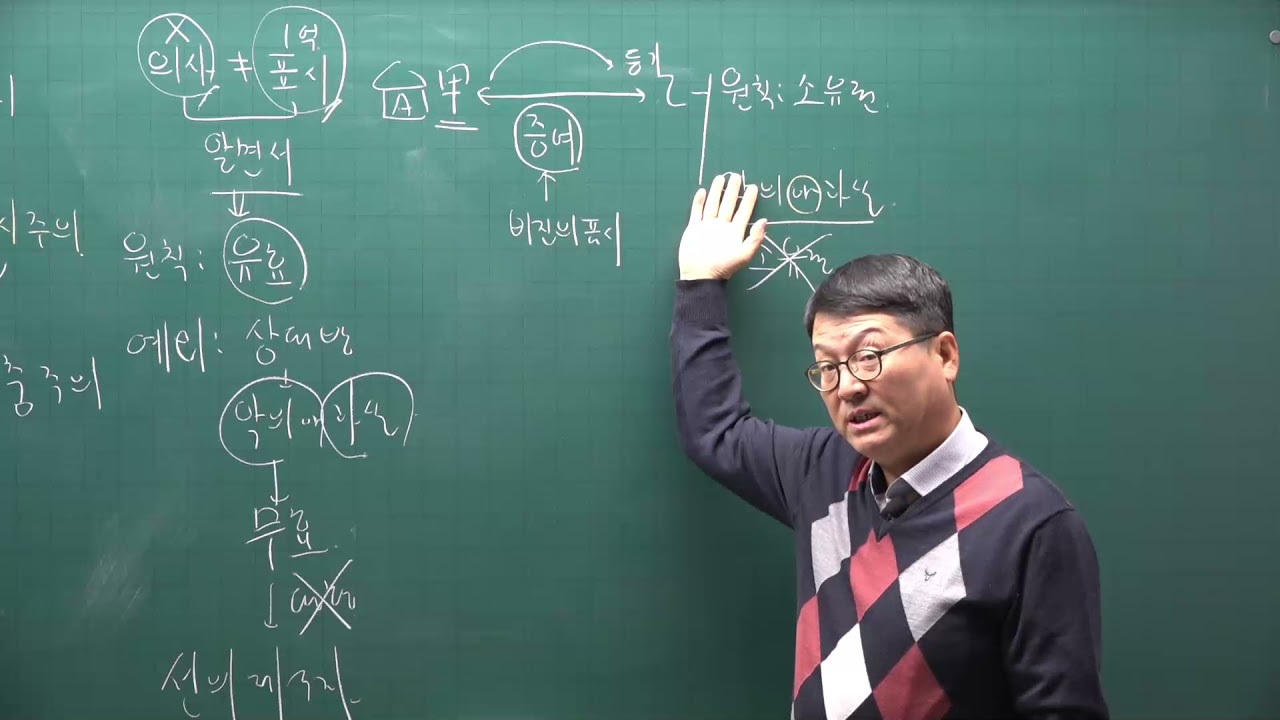 X
의사 ≠ 1억 표시
알면서
원칙: 유효
예외: 상대방
악의 or 과실
무효
선의 제3자
시주의
중주의
A 甲
등기
乙
증여
비진의표시
원칙: 소유권
의 or 과실